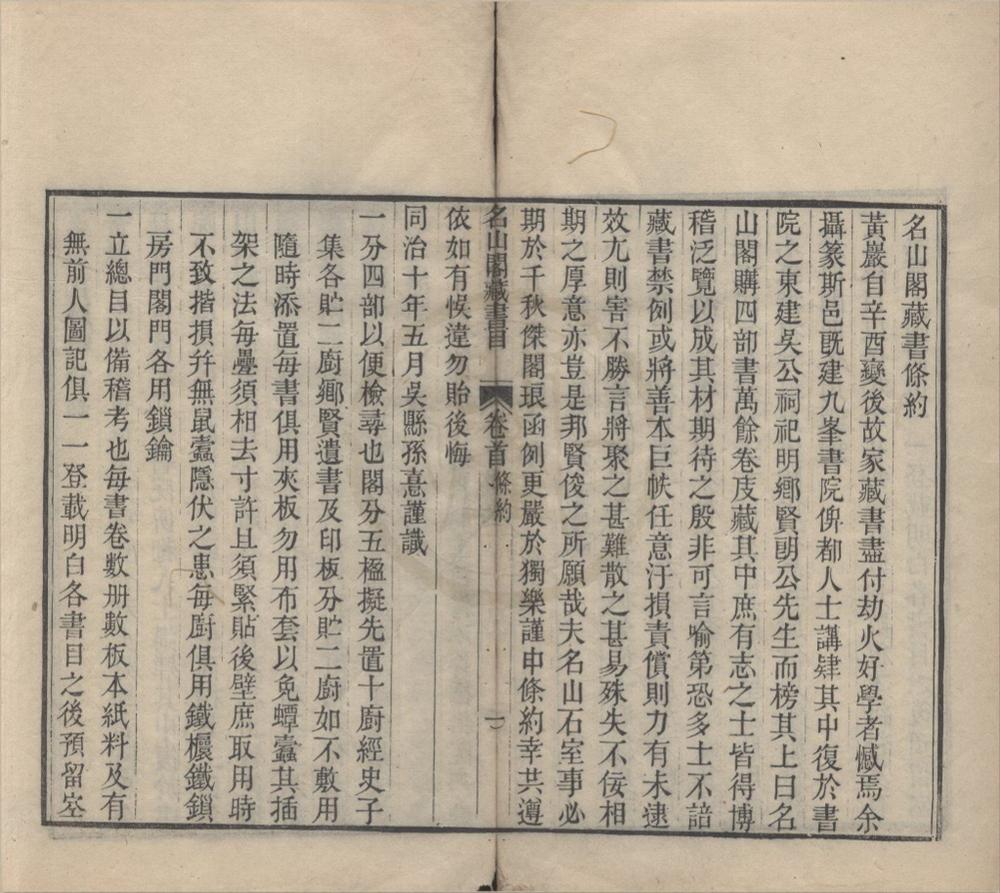 名山閣藏書條約
黃巖自辛酉變後故家藏書盡付劫火好學者憾焉余
攝篆斯邑旣建九峯書院俾都人士講肄其中復於書
院之東建吳公祠祀明鄉賢朗公先生而榜其上曰名
山閣購四部書萬餘卷庋藏其中庶有志之士皆得博
稽泛覽以成其材期待之殷非可言喻第恐多士不諳
藏書禁例或將善本巨帙任意汙損責償則力有未逮
效尤則害不勝言將聚之甚難散之甚易殊失不佞相
期之厚意亦豈是邦賢俊之所願哉夫名山石室事必
期於千秋傑閣琅函例更嚴於獨樂謹申條約幸共遵
名山閣藏書目 卷首 條約 一
依如有悞違勿貽後悔
同治十年五月吳縣孫憙謹識
一分四部以便檢尋也閣分五楹擬先置十廚經史子
集各貯二廚鄉賢遺書及印板分貯二廚如不敷用
隨時添置每書俱用夾板勿用布套以免蟫蠹其插
架之法每疊須相去寸許且須緊貼後壁庶取用時
不致揩損幷無鼠蠹隱伏之患每廚俱用鐵欀鐵鎖
房門閣門各用鎖鑰
一立總目以備稽考也每書卷數册數板本紙料及有
無前人圖記俱一一登載明白各書目之後預留空